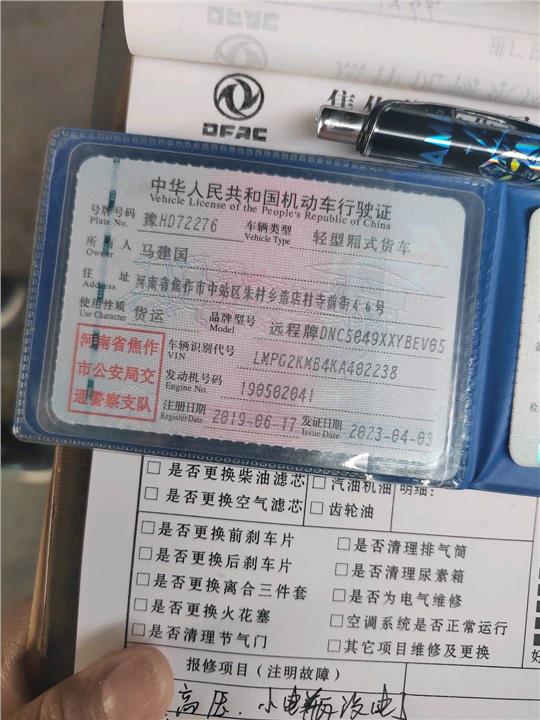 DFAC
中华人民共和国机动车行驶证
Vehicle License of the People's Republic of China
号牌号码 豫HD72276 车辆类型 轻型厢式货车
Plate No. Vehicle Type
所有人 马建国
Owner
住址 河南省焦作市中站区朱村乡造店村寺前街46号
Address
使用性质 货运 品牌型号 远程牌DNC5049XXYBEV05
Use Character Model
河南省焦作
市公安局交
通警察支队
车辆识别代号 LMPG2KMB4KA402238
VIN
发动机号码 190502041
Engine No.
注册日期 2019-06-17 发证日期 2023-04-03
Register Date Issue Date
□是否更换柴油滤芯 □汽油机油 明细:
□是否更换空气滤芯 □齿轮油
□是否更换前刹车片 □是否清理排气筒
□是否更换后刹车片 □是否清理尿素箱
□是否更换离合三件套 □是否为电气维修
□是否更换火花塞 □空调系统是否正常运行
□是否清理节气门 □其它项目维修及更换
报修项目（注明故障）
高压.小电瓶没电